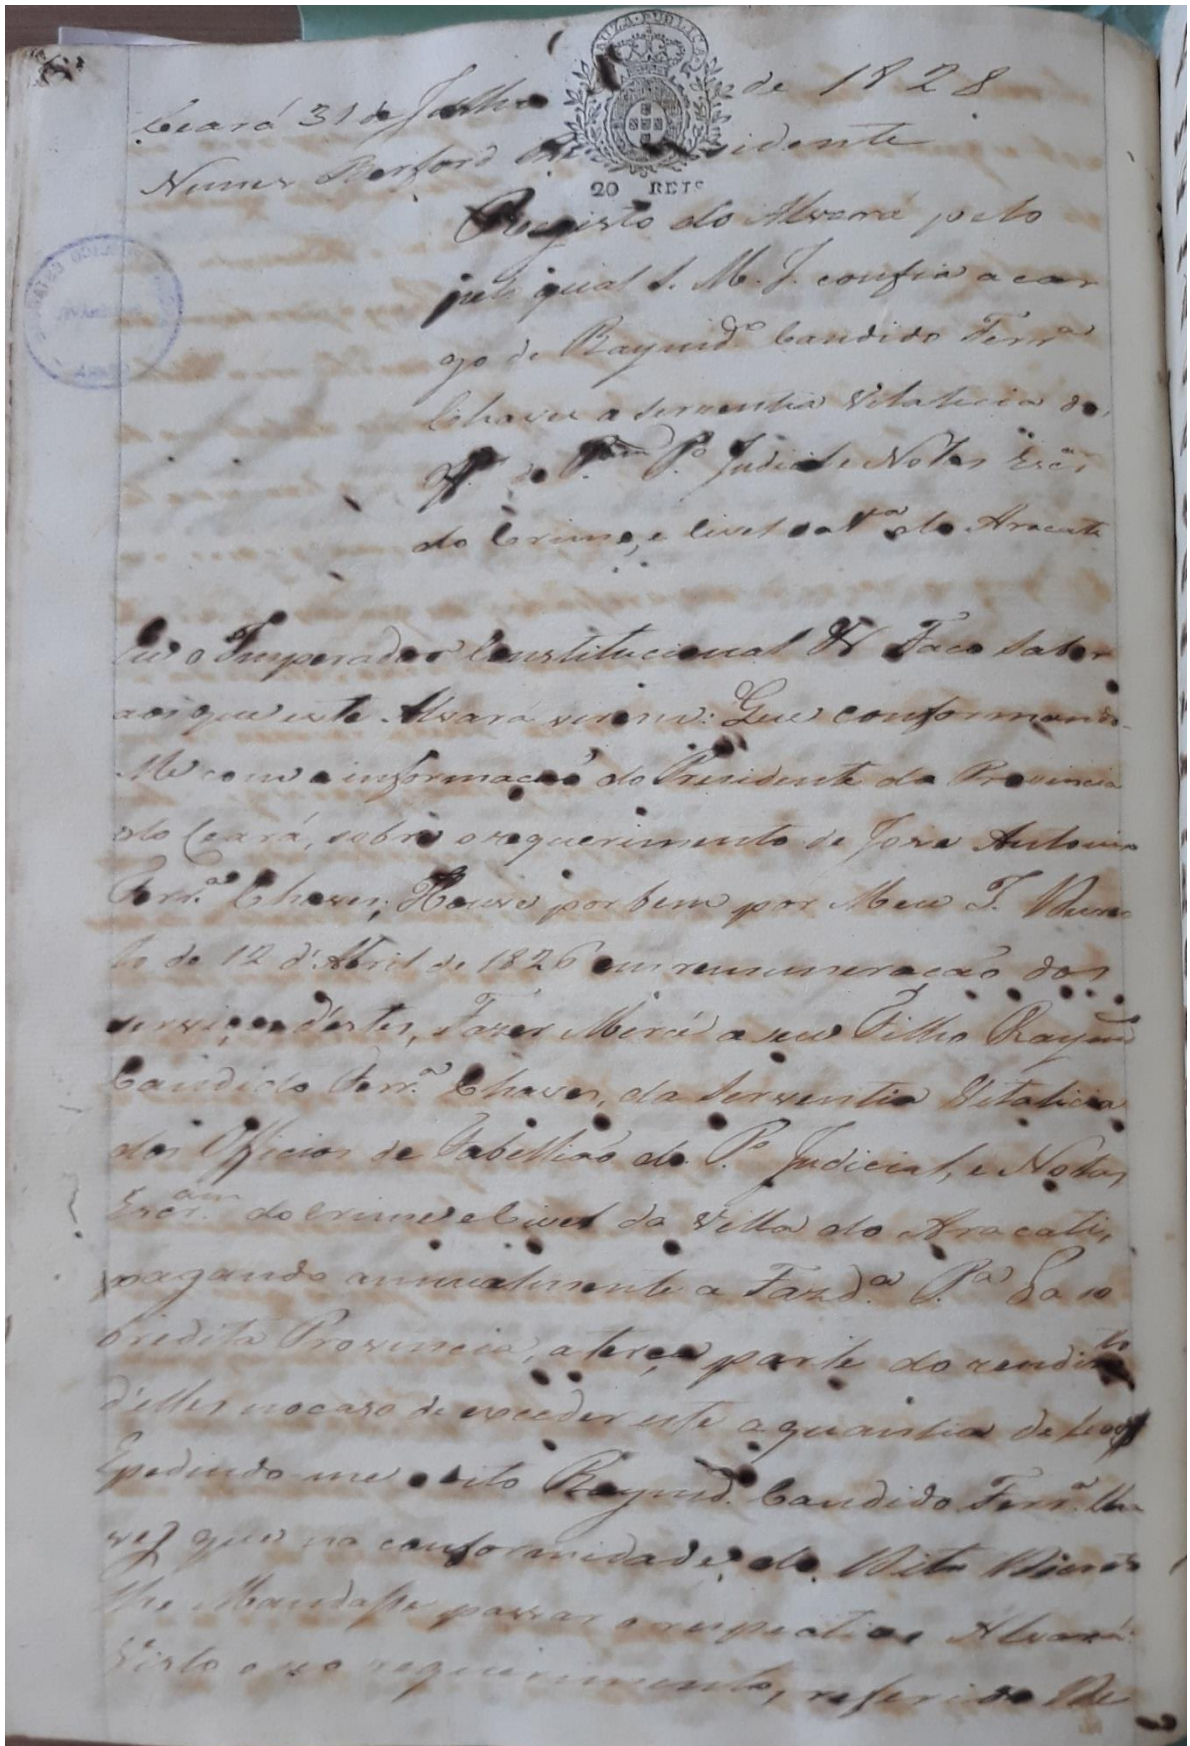 CAUZA PUBLICA
Ceará 31 de Julho de 1828
Nunes Berford Presidente
20 REIS
Registo do Alvará pelo
pelo qual S. M. I. confia a car
go de Raymdº Candido Ferrª
Chaves a serventia Vitalicia do
de Pº Judicial e Notas
do Crime, e Civel da Vª do Aracati
Eu o Imperador Constitucional Faco Saber
aos que este Alvará virem: Que conformando
Me com a informacaõ do Presidente da Provincia
do Ceará, sobre o requerimento de Joze Antonio
Ferr.ª Chaves; Houve por bem por Meu I. Decre
to de 12 d'Abril de 1826 em remuneracaõ dos
serviços d'estes, Fazer Mercê a seu Filho Raymd
Candido Ferr.ª Chaves, da Serventia Vitalicia
dos Officios de Tabelliaõ do P.º Judicial, e Notas
Escr.am do Crime e Civel da Villa do Aracati,
pagando annualmente a Fazd.ª P.ª da so
bredita Provincia, a terça parte do rendimto
d'elles no caso de exceder este a quantia de
Epedindo me o dito Raymd. Candido Ferr.ª Cha
ves que na conformidade do Dito Decreto
lhe Mandasse passar o respectivo Alvará:
Visto o seo requerimento, referido De